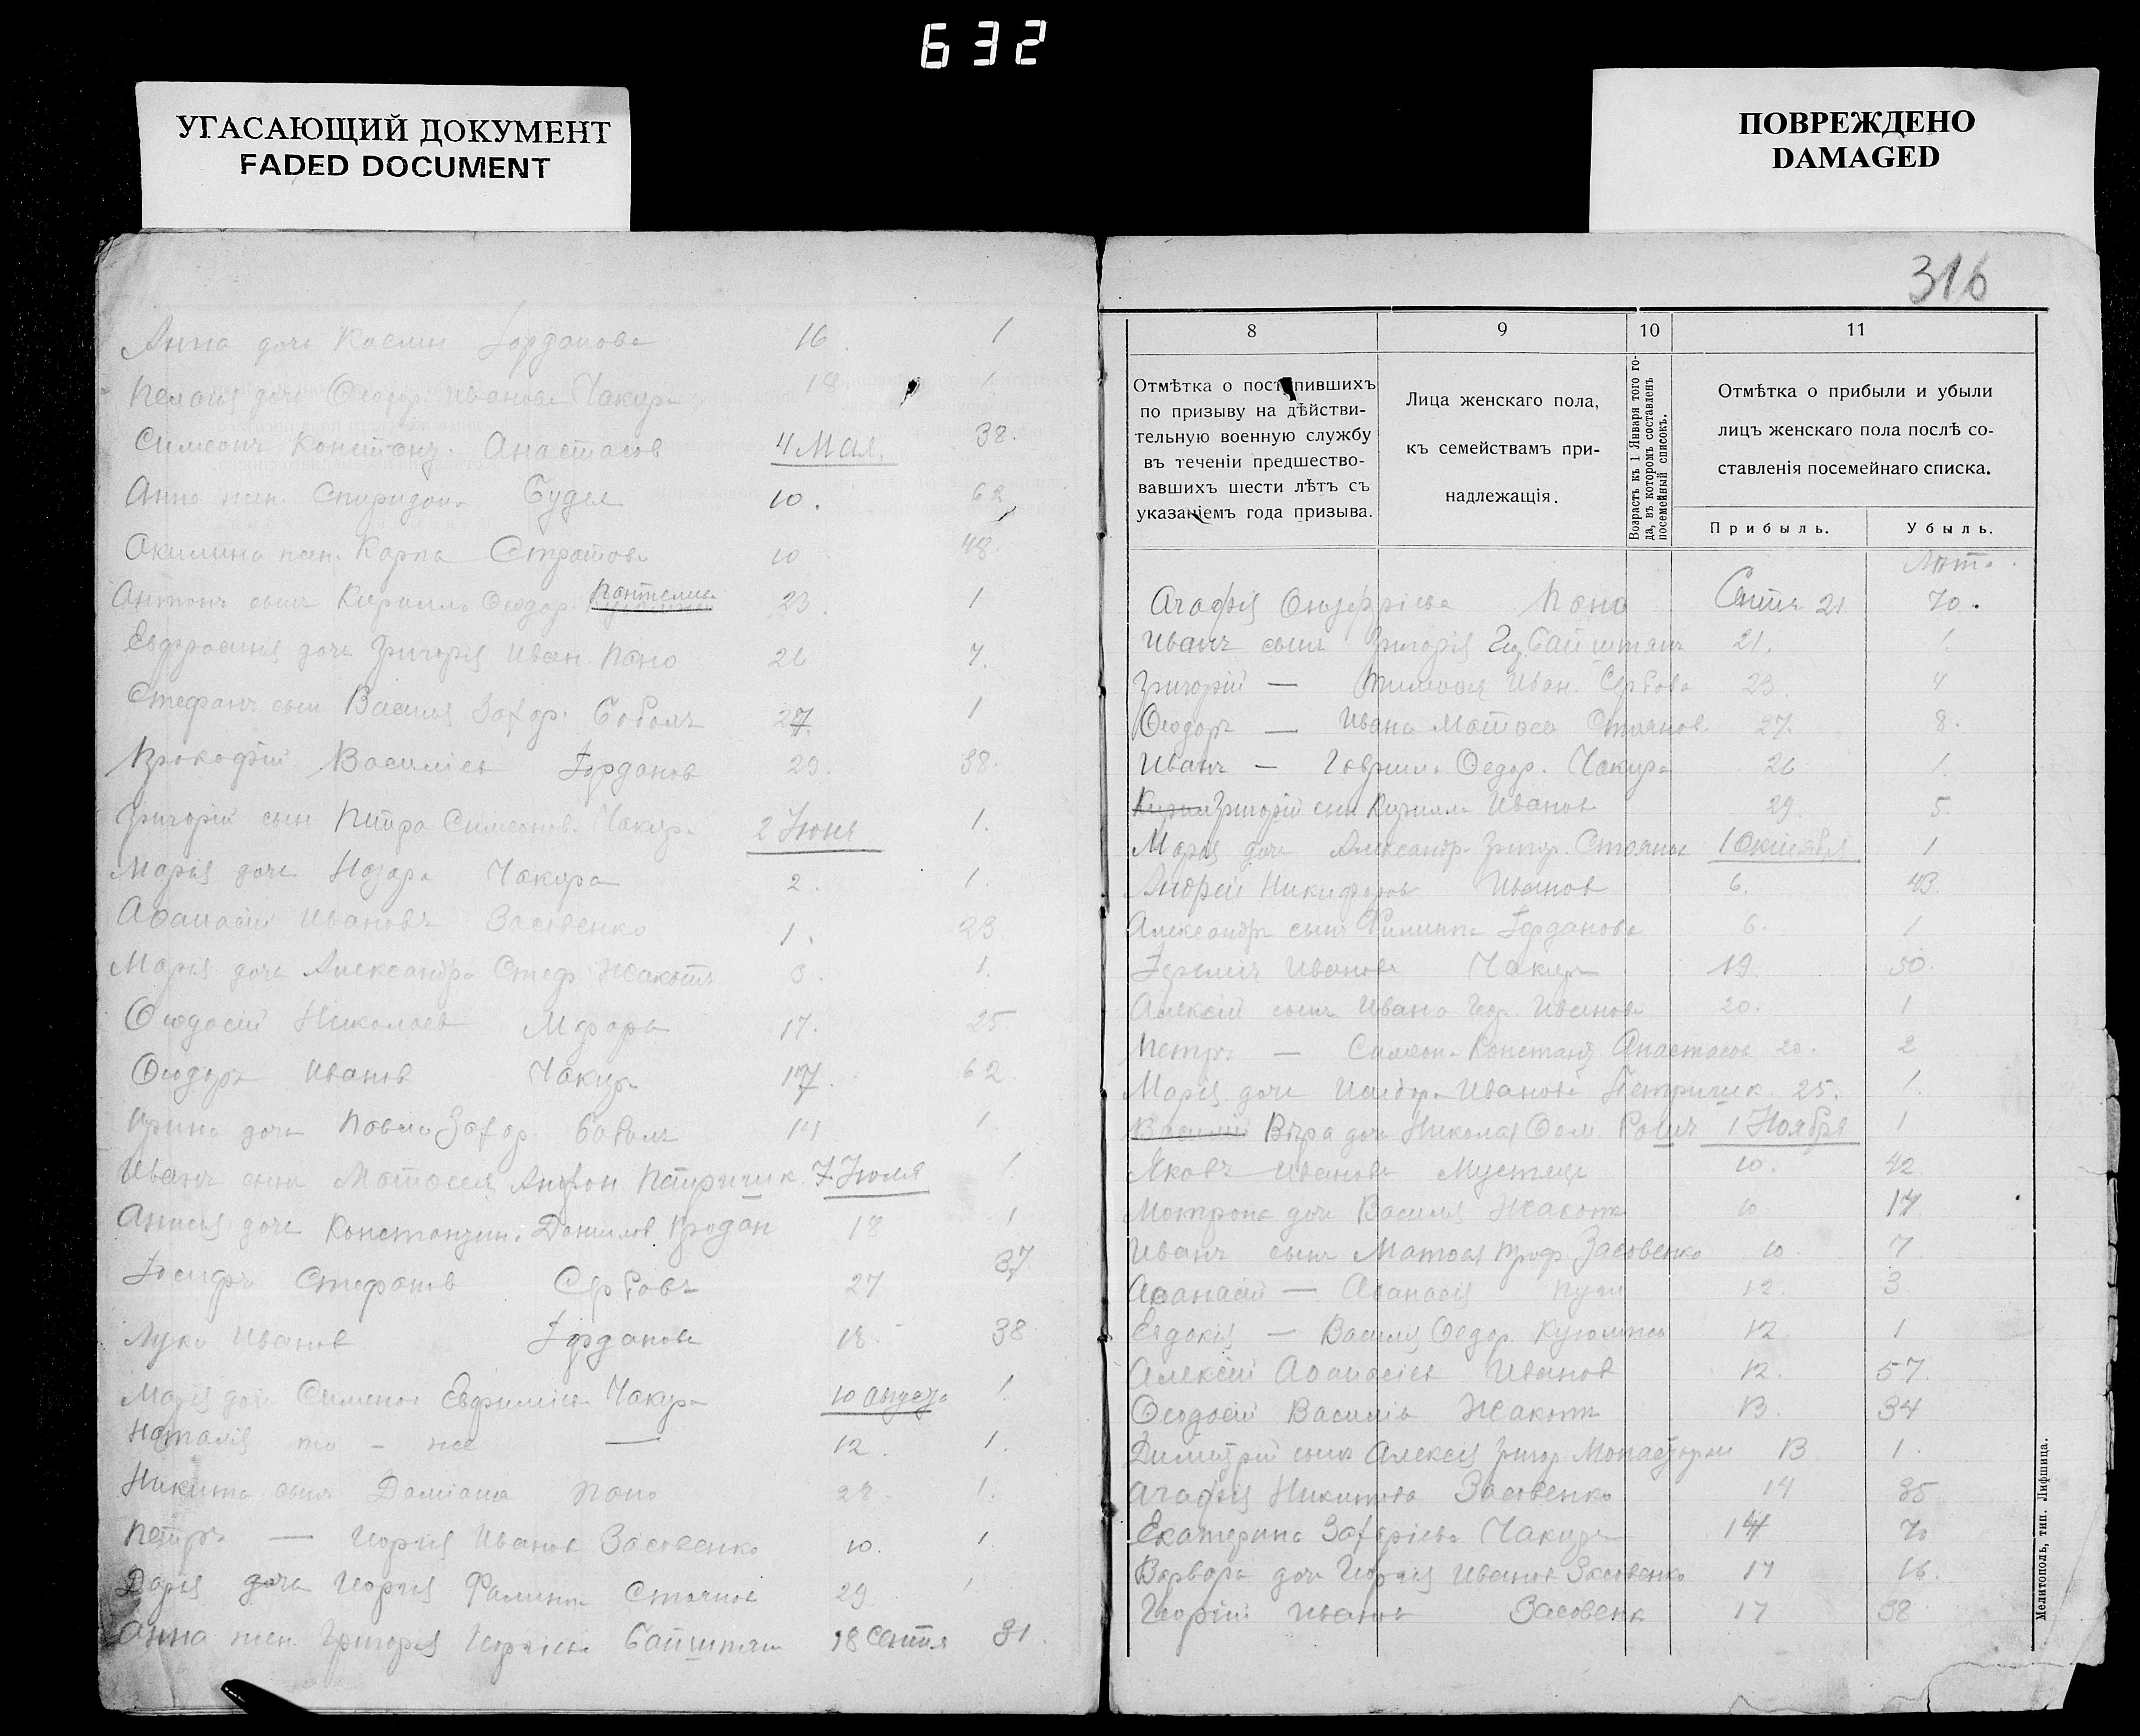 632
УГАСАЮЩИЙ ДОКУМЕНТ
FADED DOCUMENT
ПОВРЕЖДЕНО
DAMAGED
316
Анна дочь Косми Іорданова 16. 1
Пелагія дочь Ѳеодор. Иванова Чакира 18 1
Симеонъ Констанд. Анастасов 4 Мая. 38.
Анна жен. Спиридона 10. 62
Акилина жен. Карпа Стратова 10 48.
Антонъ сынъ Кирилла Ѳеодор. Пантелие 23. 1
Евфросинія дочь Григорія Иван. Попо 26
Стефанъ сын Василія Захар. 27. 1
Прокофій Василіев Іорданов 29. 38.
Григорій сын Петра Симеонов. Чакир 2 Іюня 1.
Марія дочь Назара Чакира 2. 1.
Аѳанасій Ивановъ Засовенко 1. 23
Марія дочь Александра Стеф. Жакотъ 1.
Ѳеодосій Николаев 17. 25
Ѳеодоръ Иванов Чакир 17. 62
Ирина дочь Павла Захар. 14 1
Иванъ сынъ Матвея Петричук 7 Іюля 1
Анисія дочь Констандин. Данилов 18 1
Іосифъ Стефанов Сербовъ 27 37
Лука Иванов Іорданов 18. 38
Марія дочь Симеона Евфиміев Чакира 10 августа 1.
Наталія то – же — 12. 1.
Никита сынъ Даміана Попо 28. 1.
Петръ — Георгія Иванов Засовенко 10. 1.
Дарія дочь Георгія Филипп Стоянов 29 1
Анна жен. Григорія Георгіева 18 Сентя 31.
8 9 10 11
Отмѣтка о поступившихъ
по призыву на дѣйстви-
тельную военную службу
въ теченіи предшество-
вавшихъ шести лѣтъ съ
указаніемъ года призыва.
Лица женскаго пола,
къ семействамъ при-
надлежащія.
Возрастъ къ 1 Января того го-
да, въ которомъ составленъ
посемейный списокъ.
Отмѣтка о прибыли и убыли
лицъ женскаго пола послѣ со-
ставленія посемейнаго списка.
Прибыль. Убыль.
Лѣта.
Агафія Онуфріева Попо Сентя 21 70.
Иванъ сынъ Григорія 21. 1.
Григорій — Тимофея Иван. Сербова 23. 4
Ѳеодоръ — Ивана Матвея Стоянов. 27. 8.
Иванъ — Гавриила Ѳедор. Чакира 26 1.
Григорій сын Кирилла Иванов 29. 5.
Марія дочь Александр. Григор. Стоянов 1 Октября 1
Андрей Никифоров Иванов 6. 43.
Александръ сынъ Филиппа Іорданова 6. 1
Іеремія Иванов Чакир 19. 50.
Алексій сынъ Ивана Геор. Иванова 20. 1
Петръ — Симеона Констанд. Анастасов 20. 2
Марія дочь Исидора Иванова Петричук 25. 1.
Василій Вѣра дочь Николая 1 Ноября 1
Яковъ Иванов Мустяце 10. 42.
Мотрона дочь Василія Жакот 10 14
Иванъ сынъ Матвея Троф. Засовенко 10. 7
Аѳанасій — Аѳанасія 12. 3
Евдокія — Василія Ѳедор. 12 1
Алексій Аѳанасіев Иванов 12. 57.
Ѳеодосій Василіев Жакот 13. 34
Димитрій сынъ Алексія Григор. 13 1.
Агафія Никитова Засовенко 14 35
Екатерина Захаріева Чакир 14
Варвара дочь Георгія Иванов Засовенко 17 16.
Георгій Иванов Засовенк 17 38
Мелитополь, тип. Лифшица.